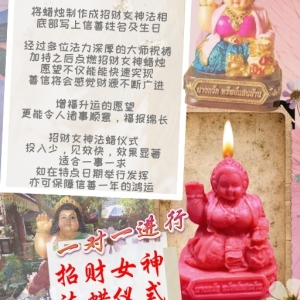 将蜡烛制作成招财女神法相
底部写上信善姓名及生日
经过多位法力深厚的大师祝祷
加持之后点燃招财女神蜡烛
愿望不仅能能快速实现
善信将会感觉财运不断广进
增福升运的愿望
更能令人诸事顺意，福报绵长
招财女神法蜡仪式
投入少，见效快，效果显著
适合一事一求
如在特点日期举行发挥
亦可保障信善一年的鸿运
一对一进行
招财女神
法蜡仪式